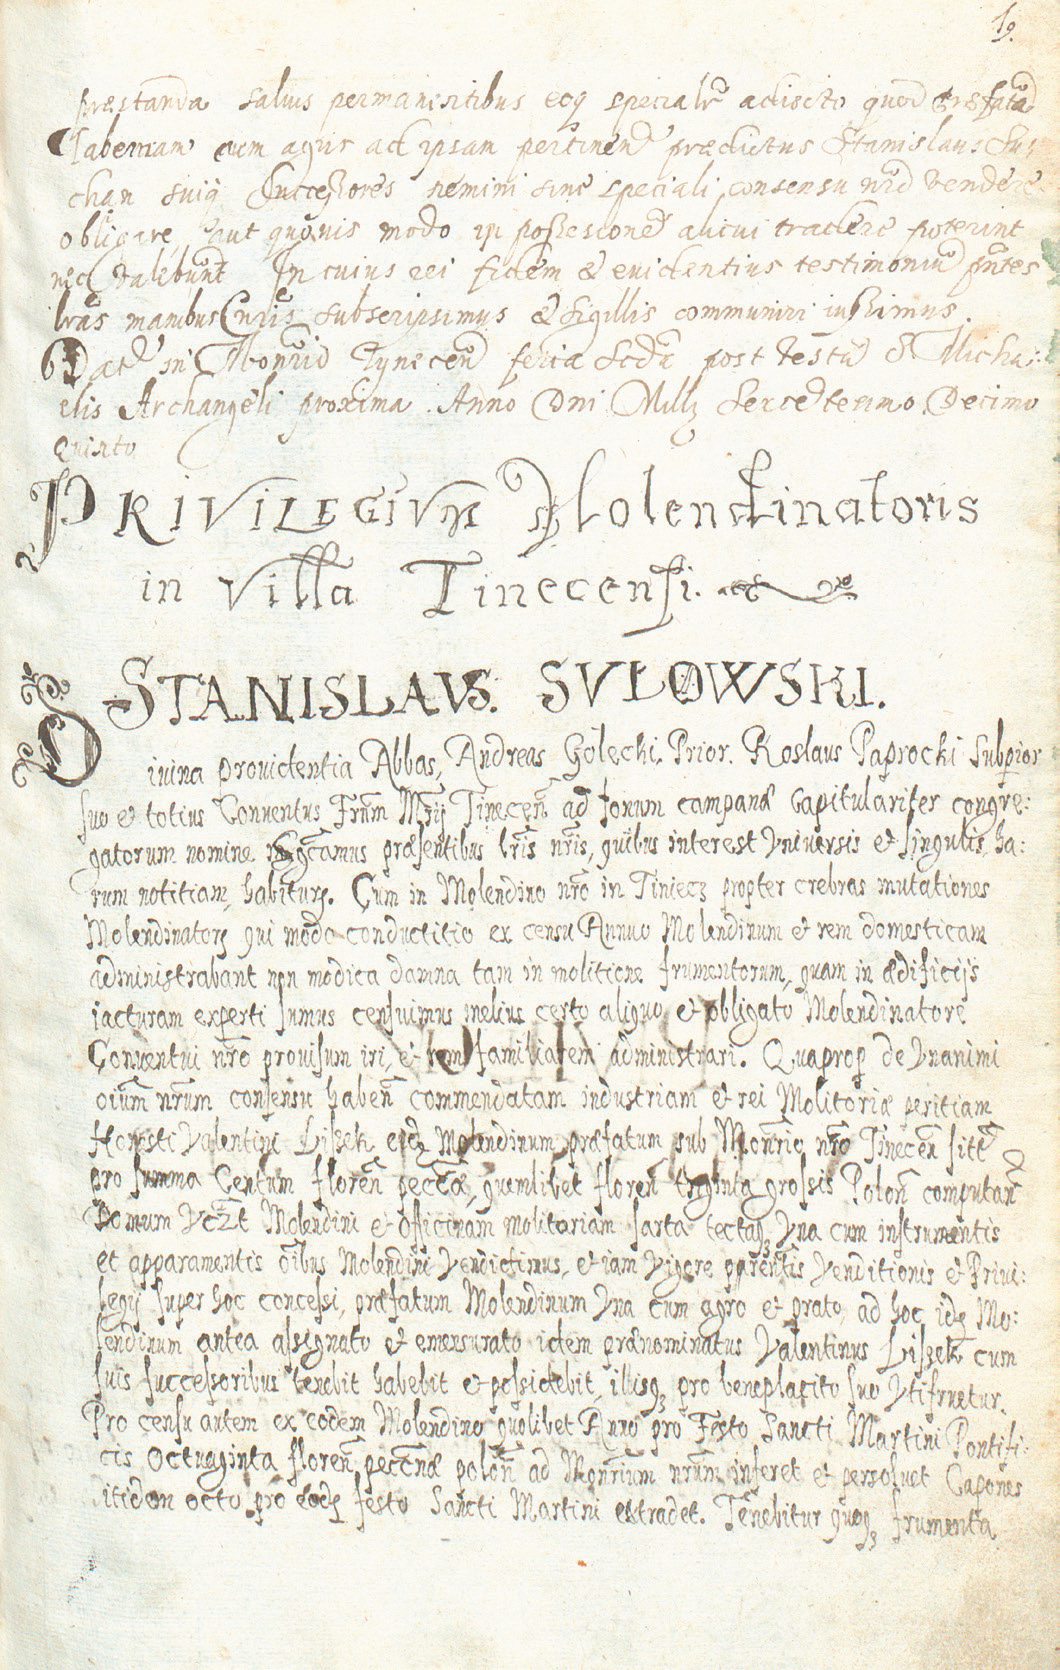 19.
præstanda salvis permanentibus eoq specialr adiecto quod præfatã
Tabernam cum agris ad ipsam pertinen prædictus Stanislaus Su:
chan suiq Successores nemini sine speciali consensu nro vendere
obligare, aut quovis modo in possessione alicui tradere poterint
nec valebunt In cuius rei fidem & evidentius testimoniu pntes
lras manibus nris subscripsimus & sigillis communiri iussimus.
Dat in Monrio Tynecen feria Scda post festu S Micha:
elis Archangeli proxima Anno Dni Millo Sexcentesimo Decimo
Quinto
PRIVILEGIVM Molendinatoris
in Villa Tinecensi.
STANISLAVS. SVŁOWSKI.
Divina providentia Abbas, Andreas Golecki Prior. Roslaus Paprocki Subprior
suo et totius Conventus Frum Mrij Tinecen ad sonum campanæ capitulariter congre:
gatorum nomine præsentibus lris nris, quibus interest Vniversis et singulis, ha:
rum notitiam, habituris. Cum in Molendino nro in Tiniecz propter crebras mutationes
Molendinatorq qui modo conductitio ex censu Annuo Molendinum et rem domesticam
administrabant non modica damna tam in molitione frumentorum, quam in ædificijs
iacturam experti sumus censuimus melius certo aliquo et obligato Molendinatore
Conventui nro provisum iri, et rem familiarem administrari. Quaprop de Vnanimi
oium nrum consensu haben commendatam industriam et rei Molitoriæ peritiam
Honesti Valentini Liszek eidq Molendinum præfatum sub Monrio nro Tinecen sitt
pro summa Centum floren peccæ, quemlibet floren triginta grossis Polon computan
Domum Vczt Molendini et officinam molitoriam sarta tectaq, Vna cum instrumentis
et apparamentis oibus Molendini Vendidimus, et iam Vigore præsentis Venditionis et Privi:
legij super hoc concessi, præfatum Molendinum Vna cum agro et prato ad hoc idq Mo:
lendinum antea assignato et emensurato idem prænominatus Valentinus Liszek cum
suis successoribus tenebit habebit et possidebit, illisq pro beneplacito suo Vtifruetur.
Pro censu autem ex eodem Molendino quolibet Anno pro Festo Sancti Martini Pontifi:
cis Octuaginta floren pecunæ polon ad Monrium nrum inferet et persoluet Capones
itidem octo pro eodq festo Sancti Martini extradet. Tenebitur quoq frumenta